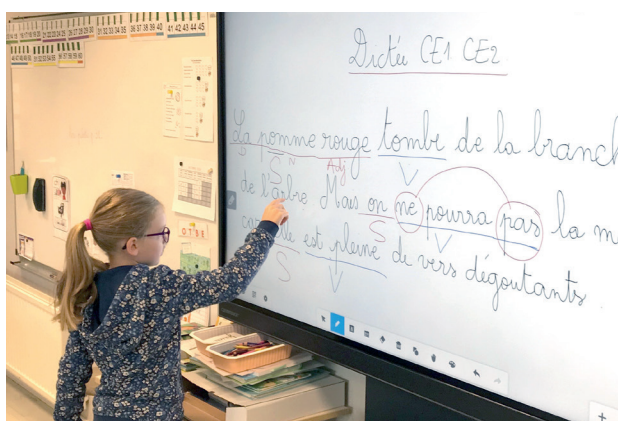 Dictée CE1 CE2
La pomme rouge tombe de la branch
S N Adj V
de l'arbre Mais on ne pourra pas la m
S V
car elle est pleine de vers dégoutants.
S V